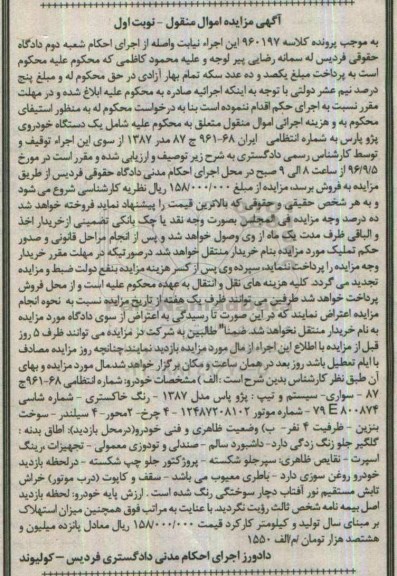 آگهی مزایده اموال منقول - نوبت اول
به موجب پرونده کلاسه ۹۶۰۱۹۷ این اجراء نیابت واصله از اجرای احکام شعبه دوم دادگاه
حقوقی فردیس له سمانه رضایی پیر لوجه و علیه محمود کاظمی که محکوم علیه محکوم
است به پرداخت مبلغ یکصد و ده عدد سکه تمام بهار آزادی در حق محکوم له و مبلغ پنج
درصد نیم عشر دولتی با توجه به اینکه اجرائیه صادره به محکوم علیه ابلاغ شده و در مهلت
مقرر نسبت به اجرای حکم اقدام ننموده است بنا به درخواست محکوم له به منظور استیفای
محکوم به و هزینه اجرائی اموال منقول متعلق به محکوم علیه شامل یک دستگاه خودروی
پژو پارس به شماره انتظامی ایران ۶۸-۹۶۱ ج ۸۷ مدر ۱۳۸۷ از سوی این اجراء توقیف و
توسط کارشناس رسمی دادگستری به شرح زیر توصیف و ارزیابی شده و مقرر است در مورخ
۹۶/۹/۵ از ساعت ۸ الی ۹ صبح در محل اجرای احکام مدنی دادگاه حقوقی فردیس از طریق
مزایده به فروش برسد، مزایده از مبلغ ۱۵۸/۰۰۰/۰۰۰ ریال نظریه کارشناسی شروع می شود
و به هر شخص حقیقی و حقوقی که بالاترین قیمت را پیشنهاد نماید فروخته خواهد شد
ده درصد وجه مزایده فی المجلس بصورت وجه نقد یا چک بانکی تضمینی ازخریدار اخذ
و الباقی ظرف مدت یک ماه از وی وصول خواهد شد و پس از انجام مراحل قانونی و صدور
حکم تملیک مورد مزایده بنام خریدار منتقل خواهد شد. درصورتیکه در مهلت مقرر خریدار
وجه مزایده را پرداخت ننماید، سپرده وی پس از کسر هزینه مزایده بنفع دولت ضبط و مزایده
تجدید می گردد. کلیه هزینه های نقل و انتقال به عهده محکوم علیه است و از محل فروش
پرداخت خواهد شد طرفین می توانند ظرف یک هفته از تاریخ مزایده نسبت به نحوه انجام
مزایده اعتراض نمایند که در این صورت تا رسیدگی به اعتراض از سوی دادگاه مورد مزایده
به نام خریدار منتقل نخواهد شد. ضمنا" طالبین به شرکت در مزایده می توانند ظرف ۵ روز
قبل از مزایده با اطلاع این اجراء از مال مورد مزایده بازدید نمایند.چنانچه روز مزایده مصادف
با ایام تعطیل باشد روز بعد در همان ساعت و مکان برگزار خواهد شد.مال مورد مزایده و بهای
آن طبق نظر کارشناس بدین شرح است : الف ) مشخصات خودرو: شماره انتظامی ۶۸-۹۶۱ج
۸۷ - سواری- سیستم و تیپ : پژو پاس مدل ۱۳۸۷ - رنگ خاکستری - شماره شاسی
۷۹ E ۸۰۰۸۷۴ - شماره موتور ۱۲۴۸۷۲۰۸۱۰۲ - ۴ چرخ- ۲محور- ۴ سیلندر - سوخت
بنزین - ظرفیت ۴ نفر - ب) وضعیت ظاهری و فنی خودرو(درمحل بازدید): اطاق بدنه :
گلگیر جلو زنگ زدگی دارد- داشبورد سالم - صندلی و تودوزی معمولی - تجهیزات :رینگ
اسپرت - نقایص ظاهری: سپرجلو شکسته - پروژکتور جلو چپ شکسته - درلحظه بازدید
خودرو روغن سوزی دارد - باطری معیوب می باشد - سقف و کاپوت (درب موتور) خراش
تابش مستقیم نور آفتاب دچار سوختگی رنگ شده است . ارزش پایه خودرو: لحظه بازدید
اصل بیمه نامه شخص ثالث رؤیت نگردید. با عنایت به مراتب فوق همچنین میزان استهلاک
بر مبنای سال تولید و کیلومتر کارکرد قیمت ۱۵۸/۰۰۰/۰۰۰ ریال معادل پانزده میلیون و
هشتصد هزار تومان /م/الف ۱۵۵۰
دادورز اجرای احکام مدنی دادگستری فردیس - کولیوند